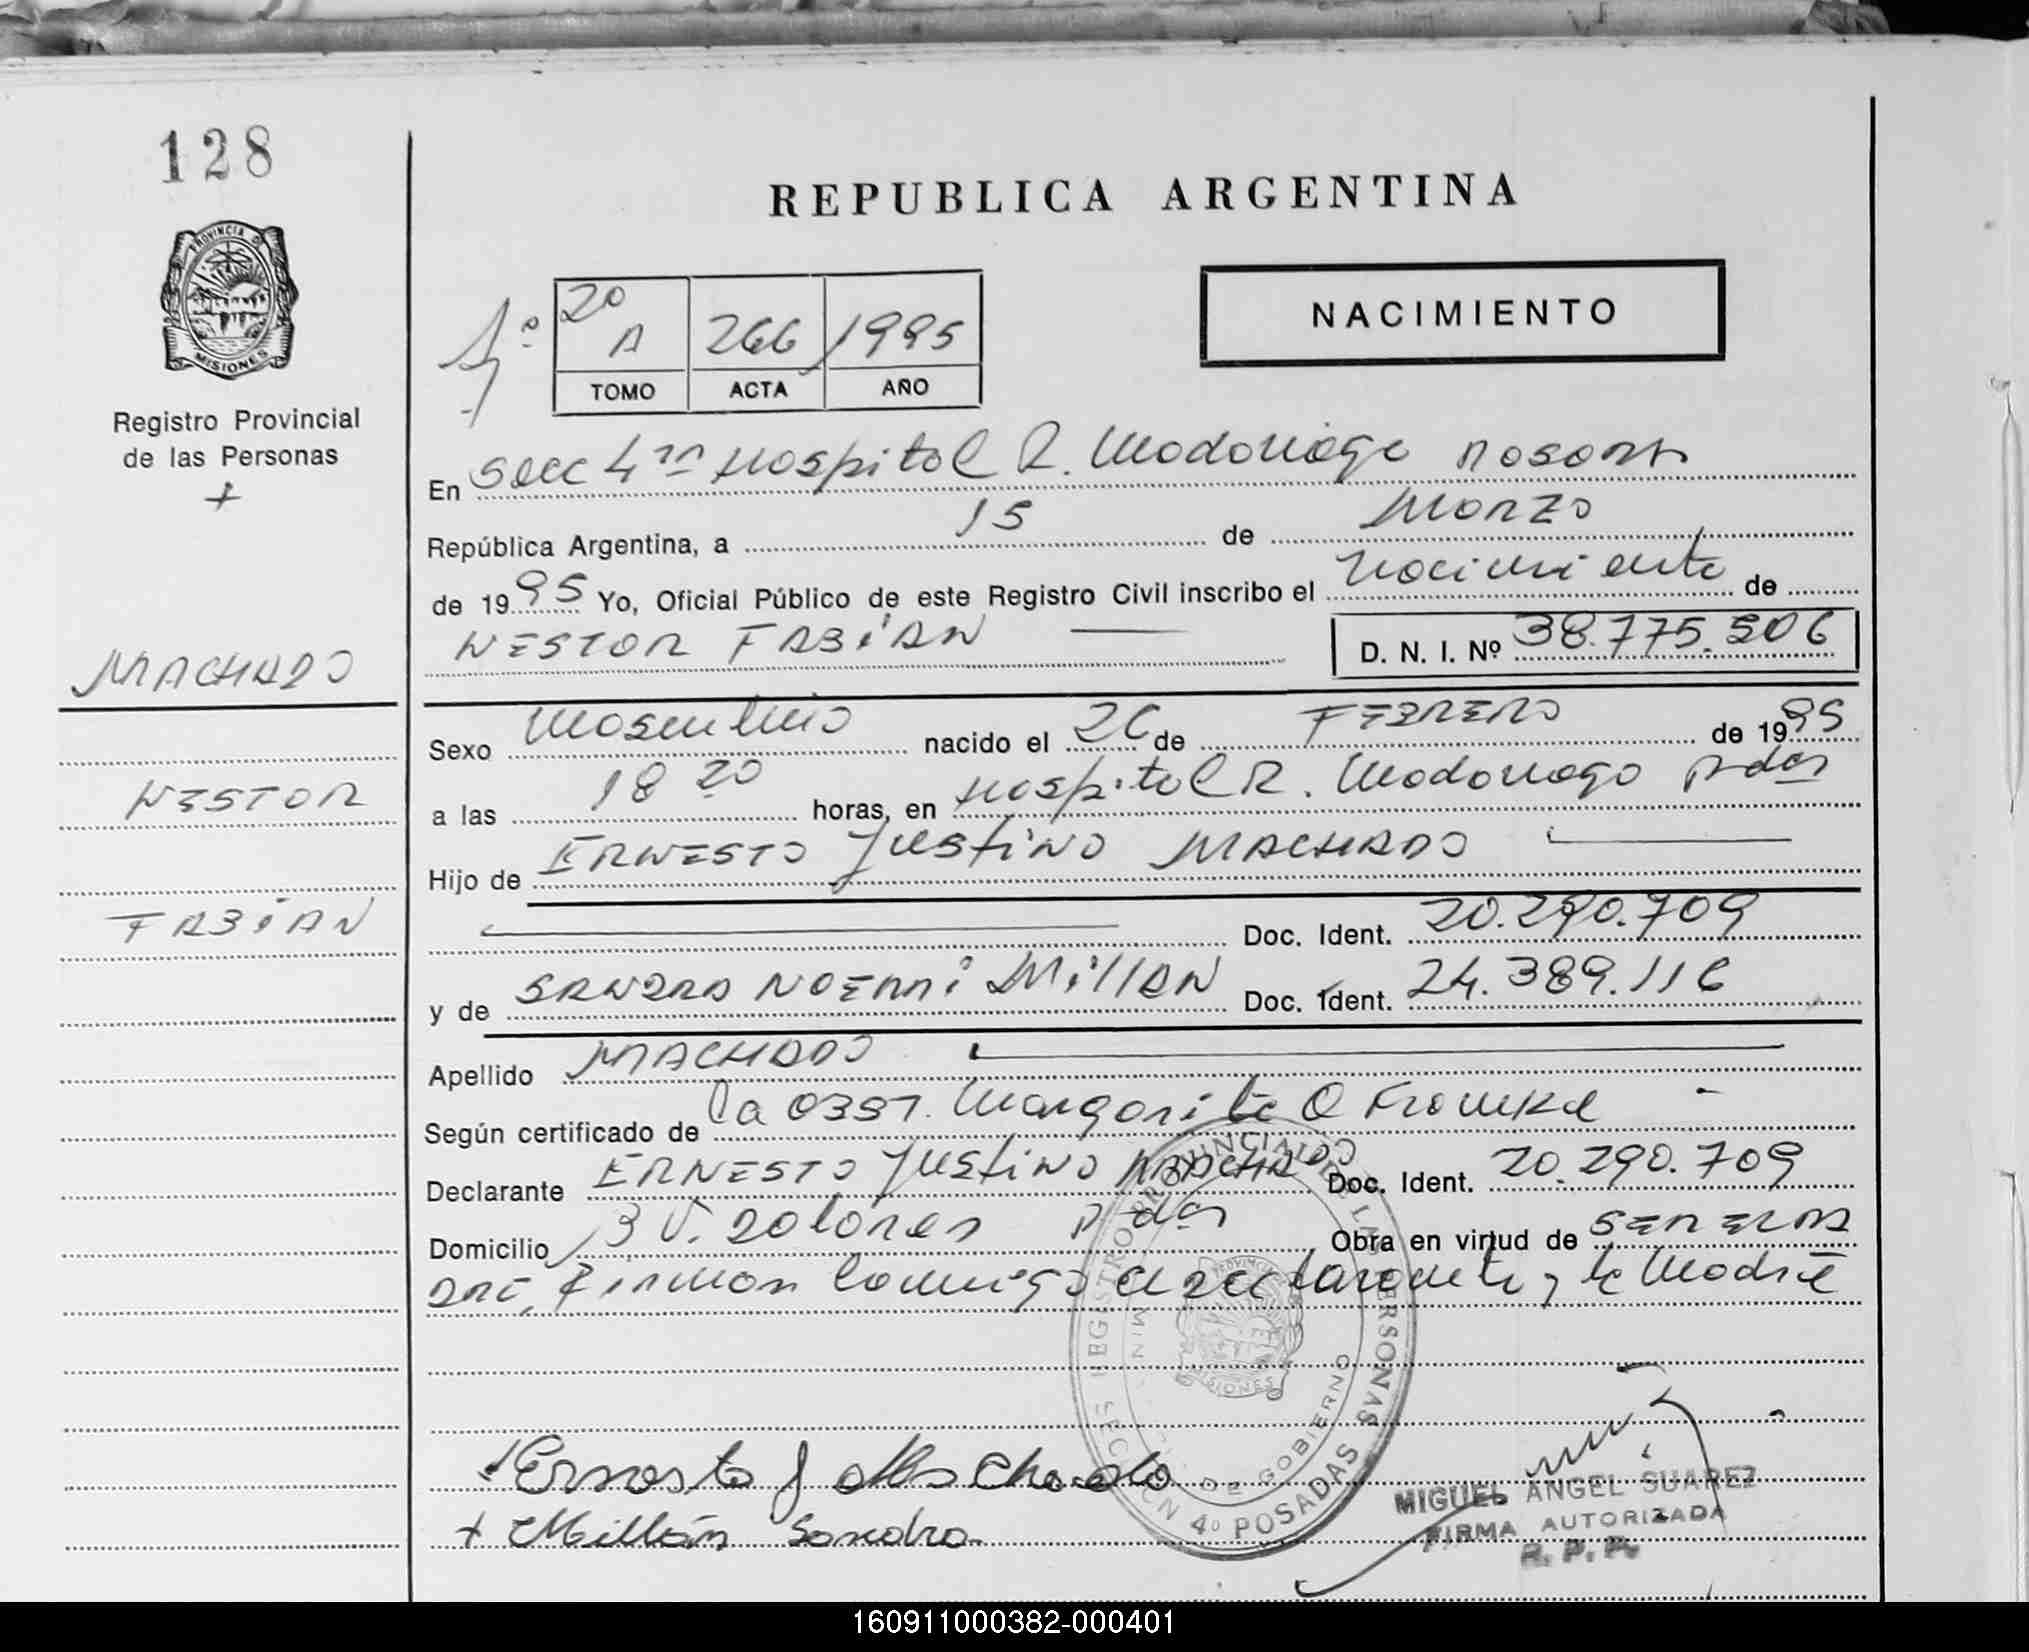 128
REPUBLICA ARGENTINA
PROVINCIA D
MISIONES
Registro Provincial
de las Personas
+
1º
2º
A 266 1995
TOMO ACTA AÑO
NACIMIENTO
En Secc 4ta Hospital R. Madariaga Posadas
República Argentina, a 15 de Marzo
de 1995 Yo, Oficial Público de este Registro Civil inscribo el Nacimiento de
NESTOR FABiAN D. N. I. Nº 38.775.506
MACHADO
NESTOR
FABiAN
Sexo Masculino nacido el 26 de FEBRERO de 1995
a las 18 20 horas, en Hospital R. Madariaga Pdas
Hijo de ERNESTO JUStiNO MACHADO
Doc. Ident. 20.290.709
y de SANDRA NOEMi MillAN Doc. Ident. 24.389.116
Apellido MACHADO
Según certificado de la OBST. Margarita Q
Declarante ERNESTO JUStiNO MACHADO Doc. Ident. 20.290.709
Domicilio B V. Dolores Pdas Obra en virtud de
Firman Conmigo el declarante y la Madre
REGISTRO PROVINCIAL DE LAS PERSONAS
MIN DE GOBIERNO
PROVINCIA
MISIONES
SECCION 4º POSADAS
Ernesto J Machado
+ Millán Sandra
MIGUEL ANGEL SUAREZ
FIRMA AUTORIZADA
R. P. P.
160911000382-000401